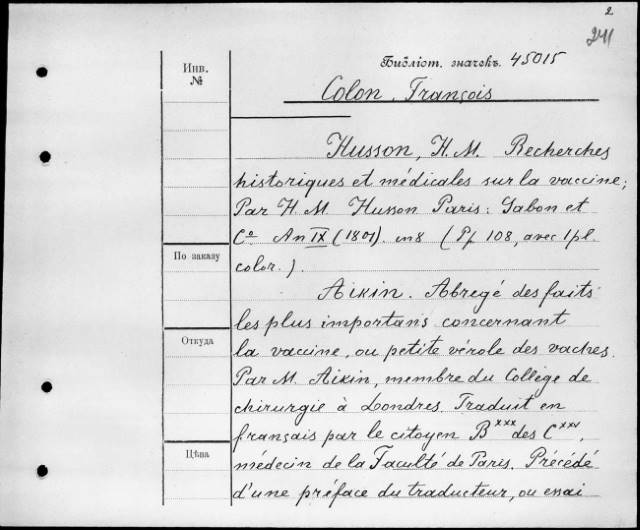 2
241
Библіот. значекъ. 45015
Инв.
№
Colon, François
Husson, H. M. Recherches
historiques et médicales sur la vaccine;
Par H. M. Husson Paris: Gabon et
Cº. An IX (1801). in 8 ( Pf 108, avec 1 pl.
color. ).
По заказу
Aikin. Abregé des faits
les plus importans concernant
Откуда
la vaccine, ou petite vérole des vaches.
Par M. Aikin, membre du Collège de
chirurgie à Londres. Traduit en
français par le citoyen Bxxx des Cxxv,
Цѣна
médecin de la Faculté de Paris. Précédé
d'une préface du traducteur, ou essai